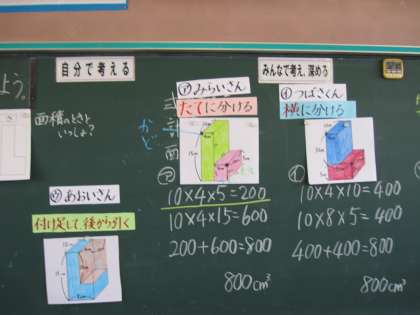 自分で考える
みんなで考え、深める
よう。
面積のときと
いっしょ?
㋐みらいさん
たてに分ける
㋑つばさくん
横に分ける
式
計
面
かど
㋐
10×4×5=200
10×4×15=600
200+600=800
800cm³
㋑
10×4×10=400
10×8×5=400
400+400=800
800cm³
㋒あおいさん
付け足して、後から引く